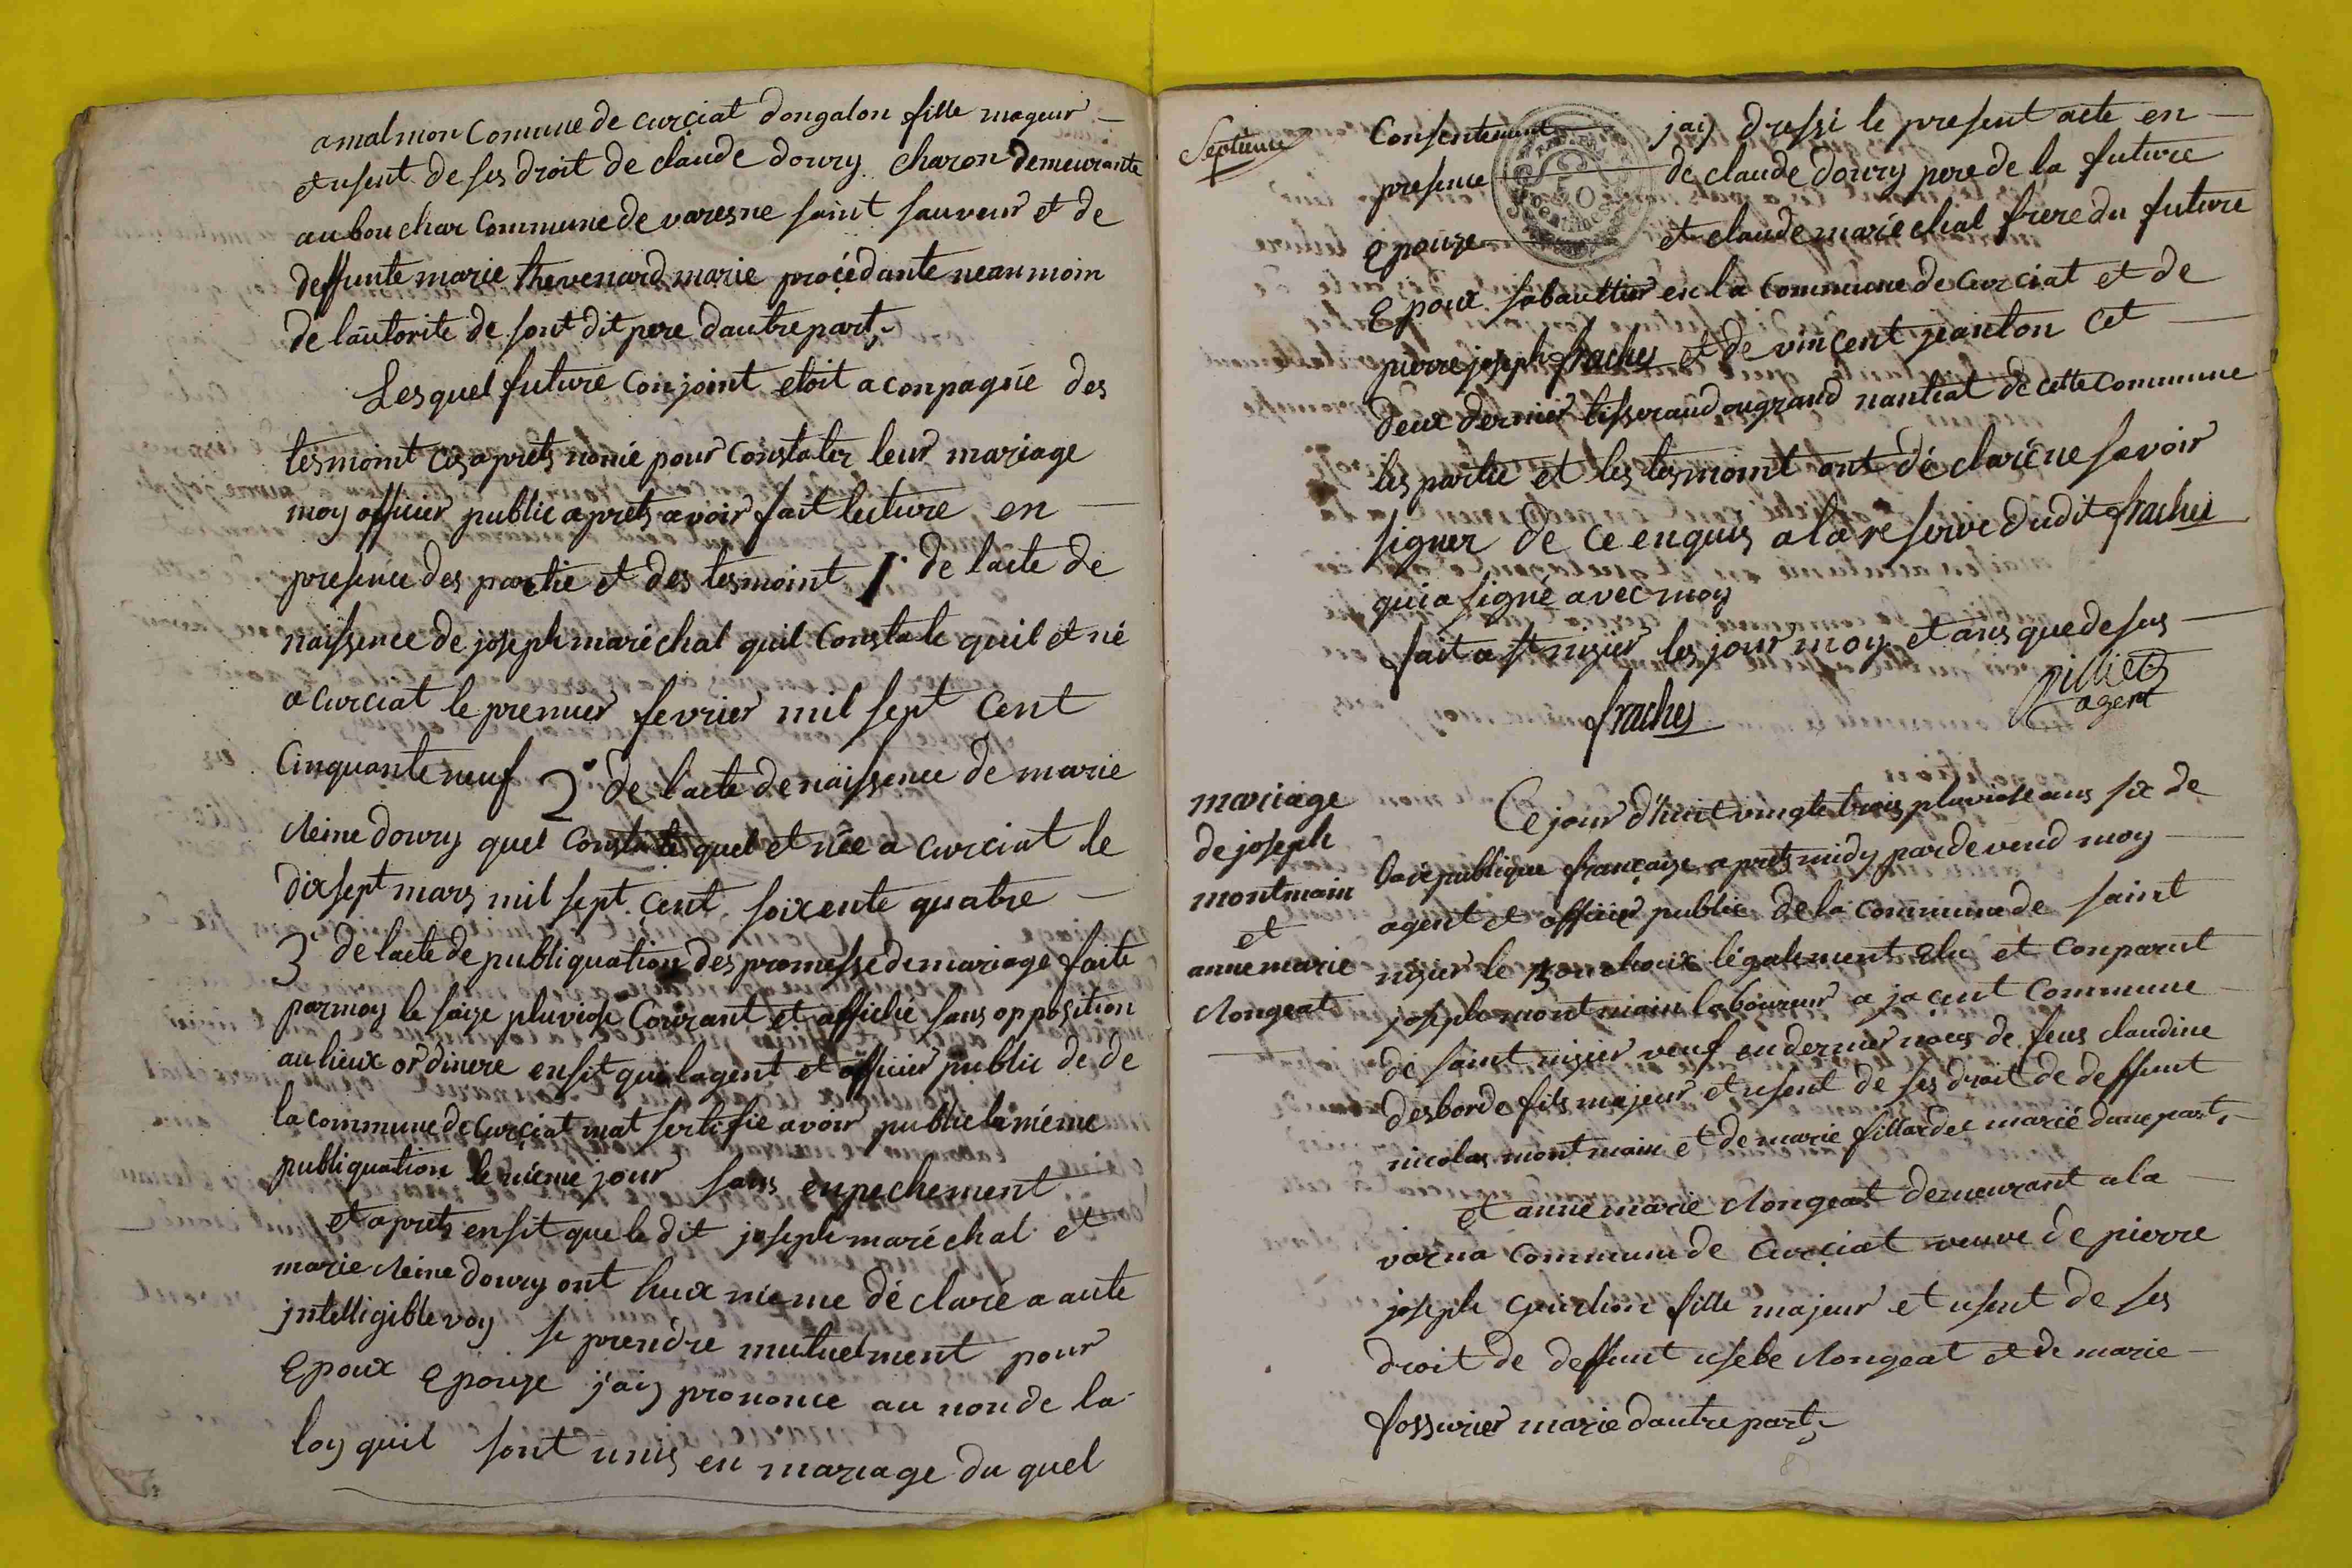 amalmon Comune de curciat dongalon fille mageur
et usent de ses droit de claude doury charon demeurante
au bouchar Commune de varesne saint sauveur et de
deffunte marie thevenard marie procédante neanmoin
de lautorite de sont dit pere dautre part,
Lesquel future conjoint etoit aconpagné des
tesmoint cis aprets nomé pour constater leur mariage
moy officier public aprets avoir fait lecture en
presence des partie et des tesmoint 1° de lacte de
naissence de joseph maréchal quil constate quil et né
a curciat le premier fevrier mil sept cent
Cinquante neuf 2° de lacte de naissence de marie
Reine doury quel constate quel et née a curciat le
dix sept mars mil sept cent soixente quatre
3° de lacte de publiquation des promesse de mariage faite
par moy le saize pluviose Courant et affiché sans opposition
au lieux ordinere ensit que lagent et officier public de de
la commune de curciat mat sertifie avoir publie la méme
publiquation le méme jour sans enpechement
et aprets ensit que le dit joseph maréchal et
marie Reine doury ont heux méme déclaré a aute
intelligible voy se prendre mutuelment pour
Epoux Epouze j'aiy prononce au non de la
loy quil sont unis en mariage du quel
Septieme
Consentement jaiy dressé le present acte en
presence de claude doury pere de la future
Epouze et claude maréchal frere du future
Epoux sabauttier en la commune de curciat et de
pierre joseph fraches et de vincent jeanton cet
deux dernier tisserand ougrand nantiat de cette commune
les partie et les tesmoint ont déclaré ne savoir
signer de ce enquis a la reserve dudit fraches
qui a signé avec moy
fait a st nisier les jour moy et ans que desus
pilliet
agent
fraches
mariage
de joseph
montmain
et
anne marie
Rongeat
Ce jour d'huit vingte trois pluviose ans six de
la république française aprets midy par devend moy
agent et officier public de la commune de saint
nisier le bouchoux légalement Elu et conparut
joseph montmain laboureur a jacent Commune
de saint nisier veuf en dernier noces de feus claudine
desborde fils majeur et usent de ses droit de deffunt
nicolas montmain et de marie fillardet marié dune part,
et anne marie Rongeat demeurant a la
varna commune de curciat veuve de pierre
joseph Guichon fille majeur et usent de ses
droit de deffunt usebe Rongeat et de marie
fossurier marie dautre part,